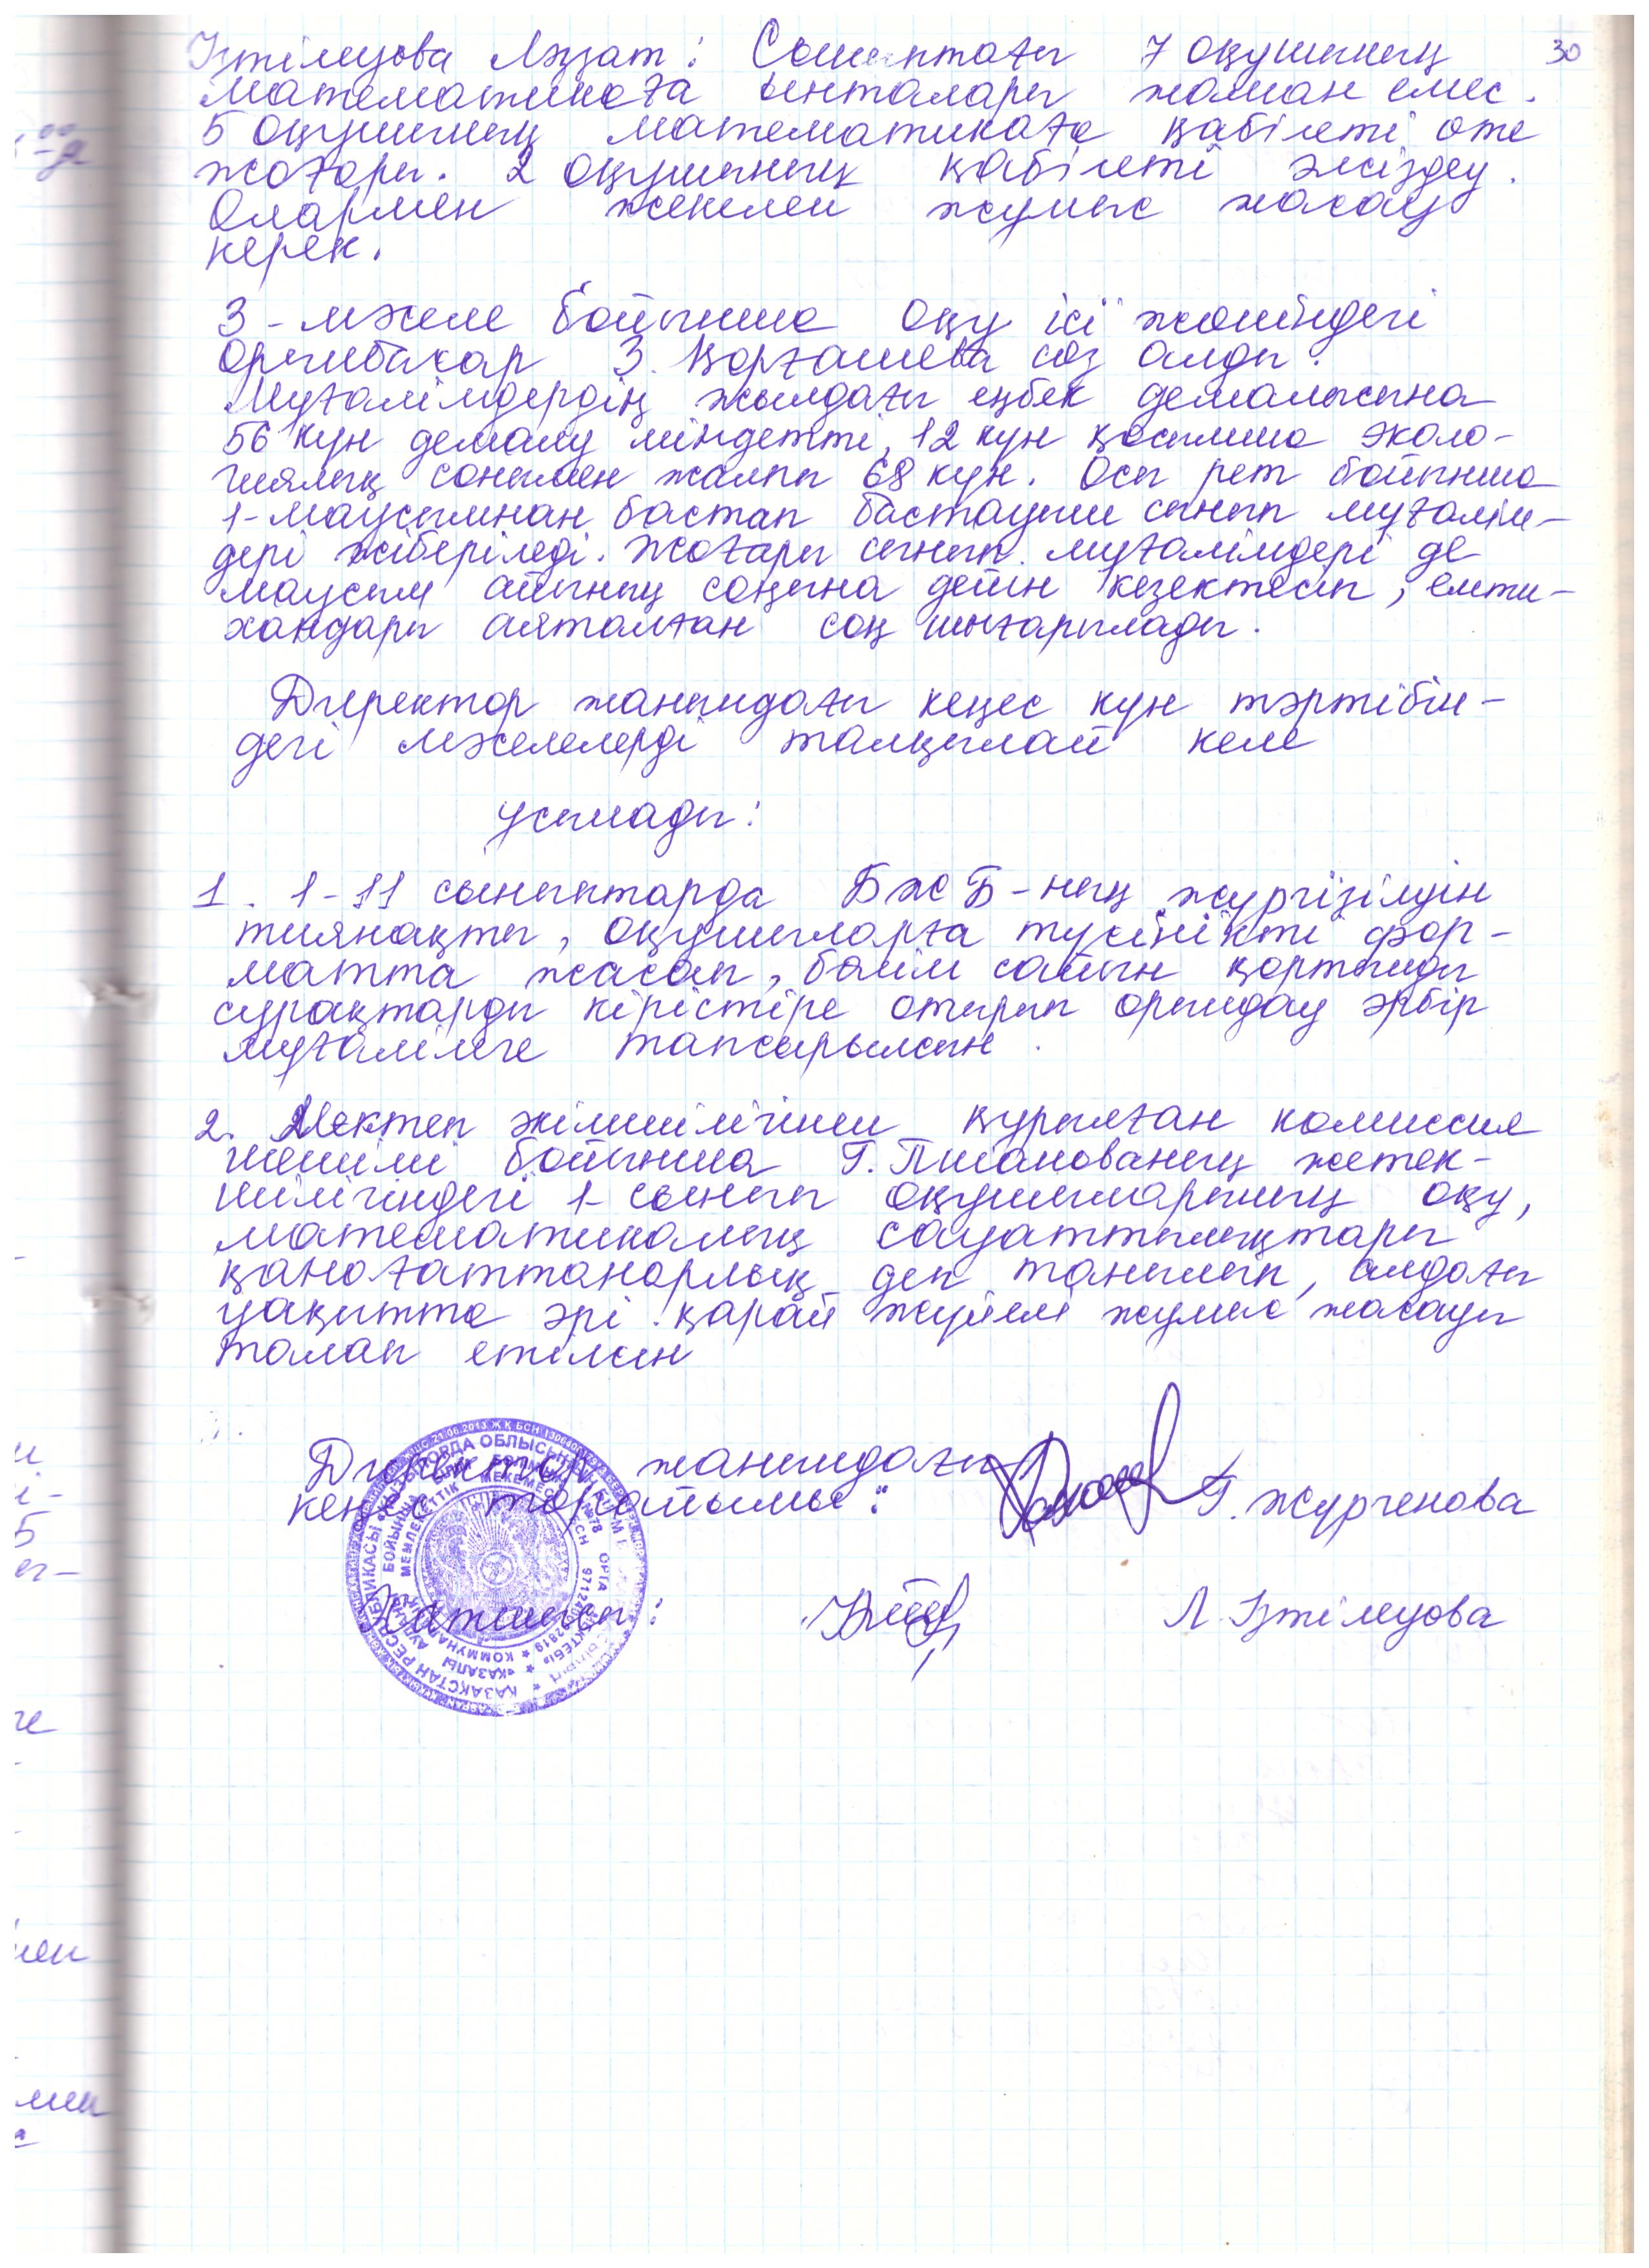 30
Ізтілеуова Ләззат: Сыныптағы 7 оқушының
математикаға ынталары жаман емес.
5 оқушының математикаға қабілеті өте
жоғары. 2 оқушының қабілеті әлсіздеу.
Олармен жекелеп жұмыс жасау
керек.
3-мәселе бойынша оқу ісі жөніндегі
орынбасар З. Қорғашева сөз алды:
Мұғалімдердің жылдағы еңбек демалысына
56 күн демалу міндетті, 12 күн қосымша эколо-
гиялық сонымен жалпы 68 күн. Осы рет бойынша
1-маусымнан бастап бастауыш сынып мұғалім-
дері жіберіледі. Жоғары сынып мұғалімдері де
маусым айының соңына дейін кезектесіп, емти-
хандары аяқталған соң шығарылады.
Директор жанындағы кеңес күн тәртібін-
дегі мәселелерді талқылай келе
ұсынады:
1. 1-11 сыныптарда БЖБ-ның жүргізілуін
тиянақты, оқушыларға түсінікті фор-
матта жасап, бөлім сайын қортынды
сұрақтарды кірістіре отырып орындау әрбір
мұғалімге тапсырылсын.
2. Мектеп әкімшілігінен құрылған комиссия
шешімі бойынша Г. Пиановның жетек-
шілігіндегі 1-сынып оқушыларының оқу,
математикалық сауаттылықтары
қанағаттанарлық деп танылып, алдағы
уақытта әрі қарай жүйелі жұмыс жасауы
талап етілсін
Директор жанындағы
кеңес төрайымы: Г. Жүргенова
Хатшысы: Л. Ізтілеуова